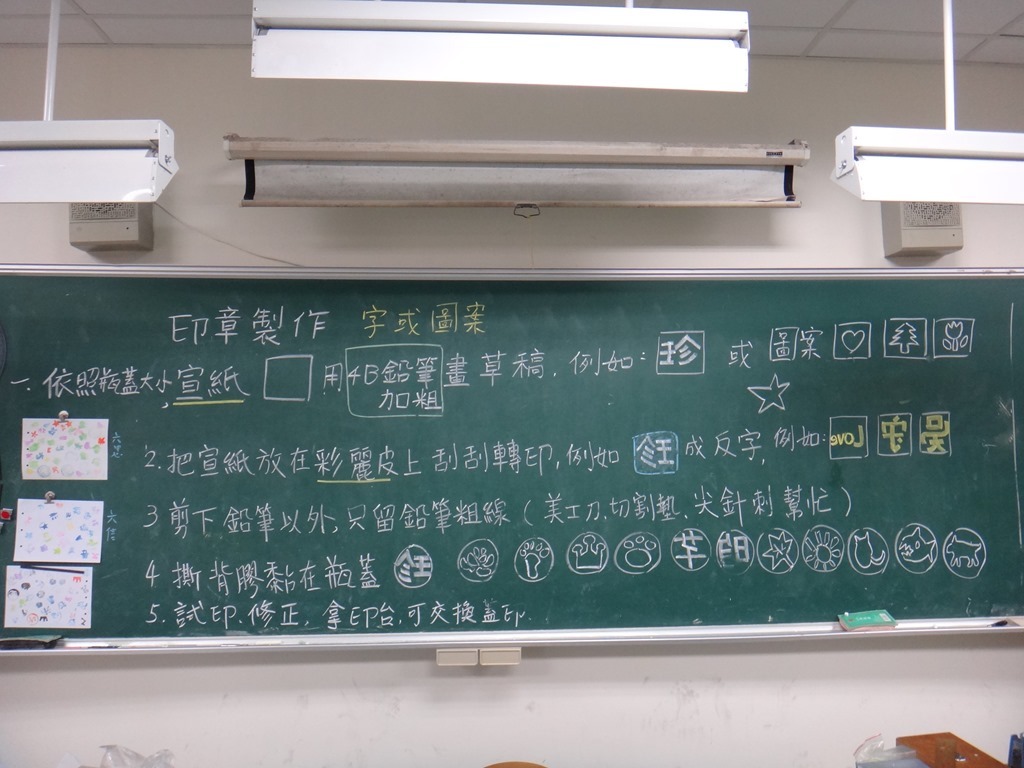 印章製作 字或圖案
一. 依照瓶蓋大小,宣紙 用 4B鉛筆加粗 畫草稿, 例如: 珍 或 圖案
2. 把宣紙放在彩麗皮上刮刮轉印, 例如 成反字, 例如: Love
3 剪下鉛筆以外, 只留鉛筆粗線 ( 美工刀、切割墊、尖針刺幫忙 )
4 撕背膠黏在瓶蓋
5. 試印. 修正, 拿印台, 可交換蓋印.